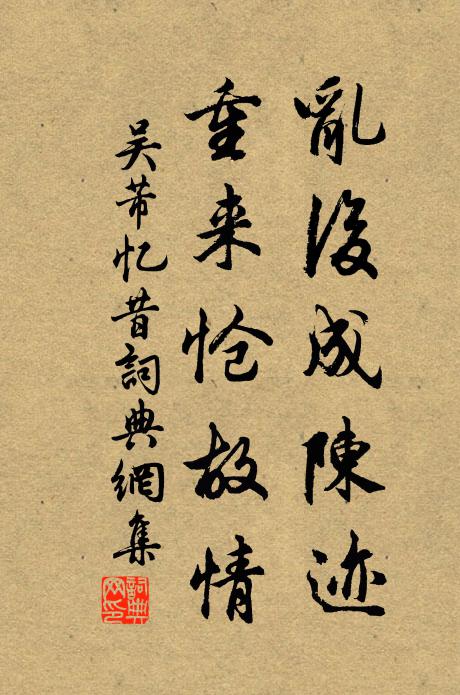 亂後成陳迹
重来怆故情
吴芾忆昔詞典網集
詞典网印